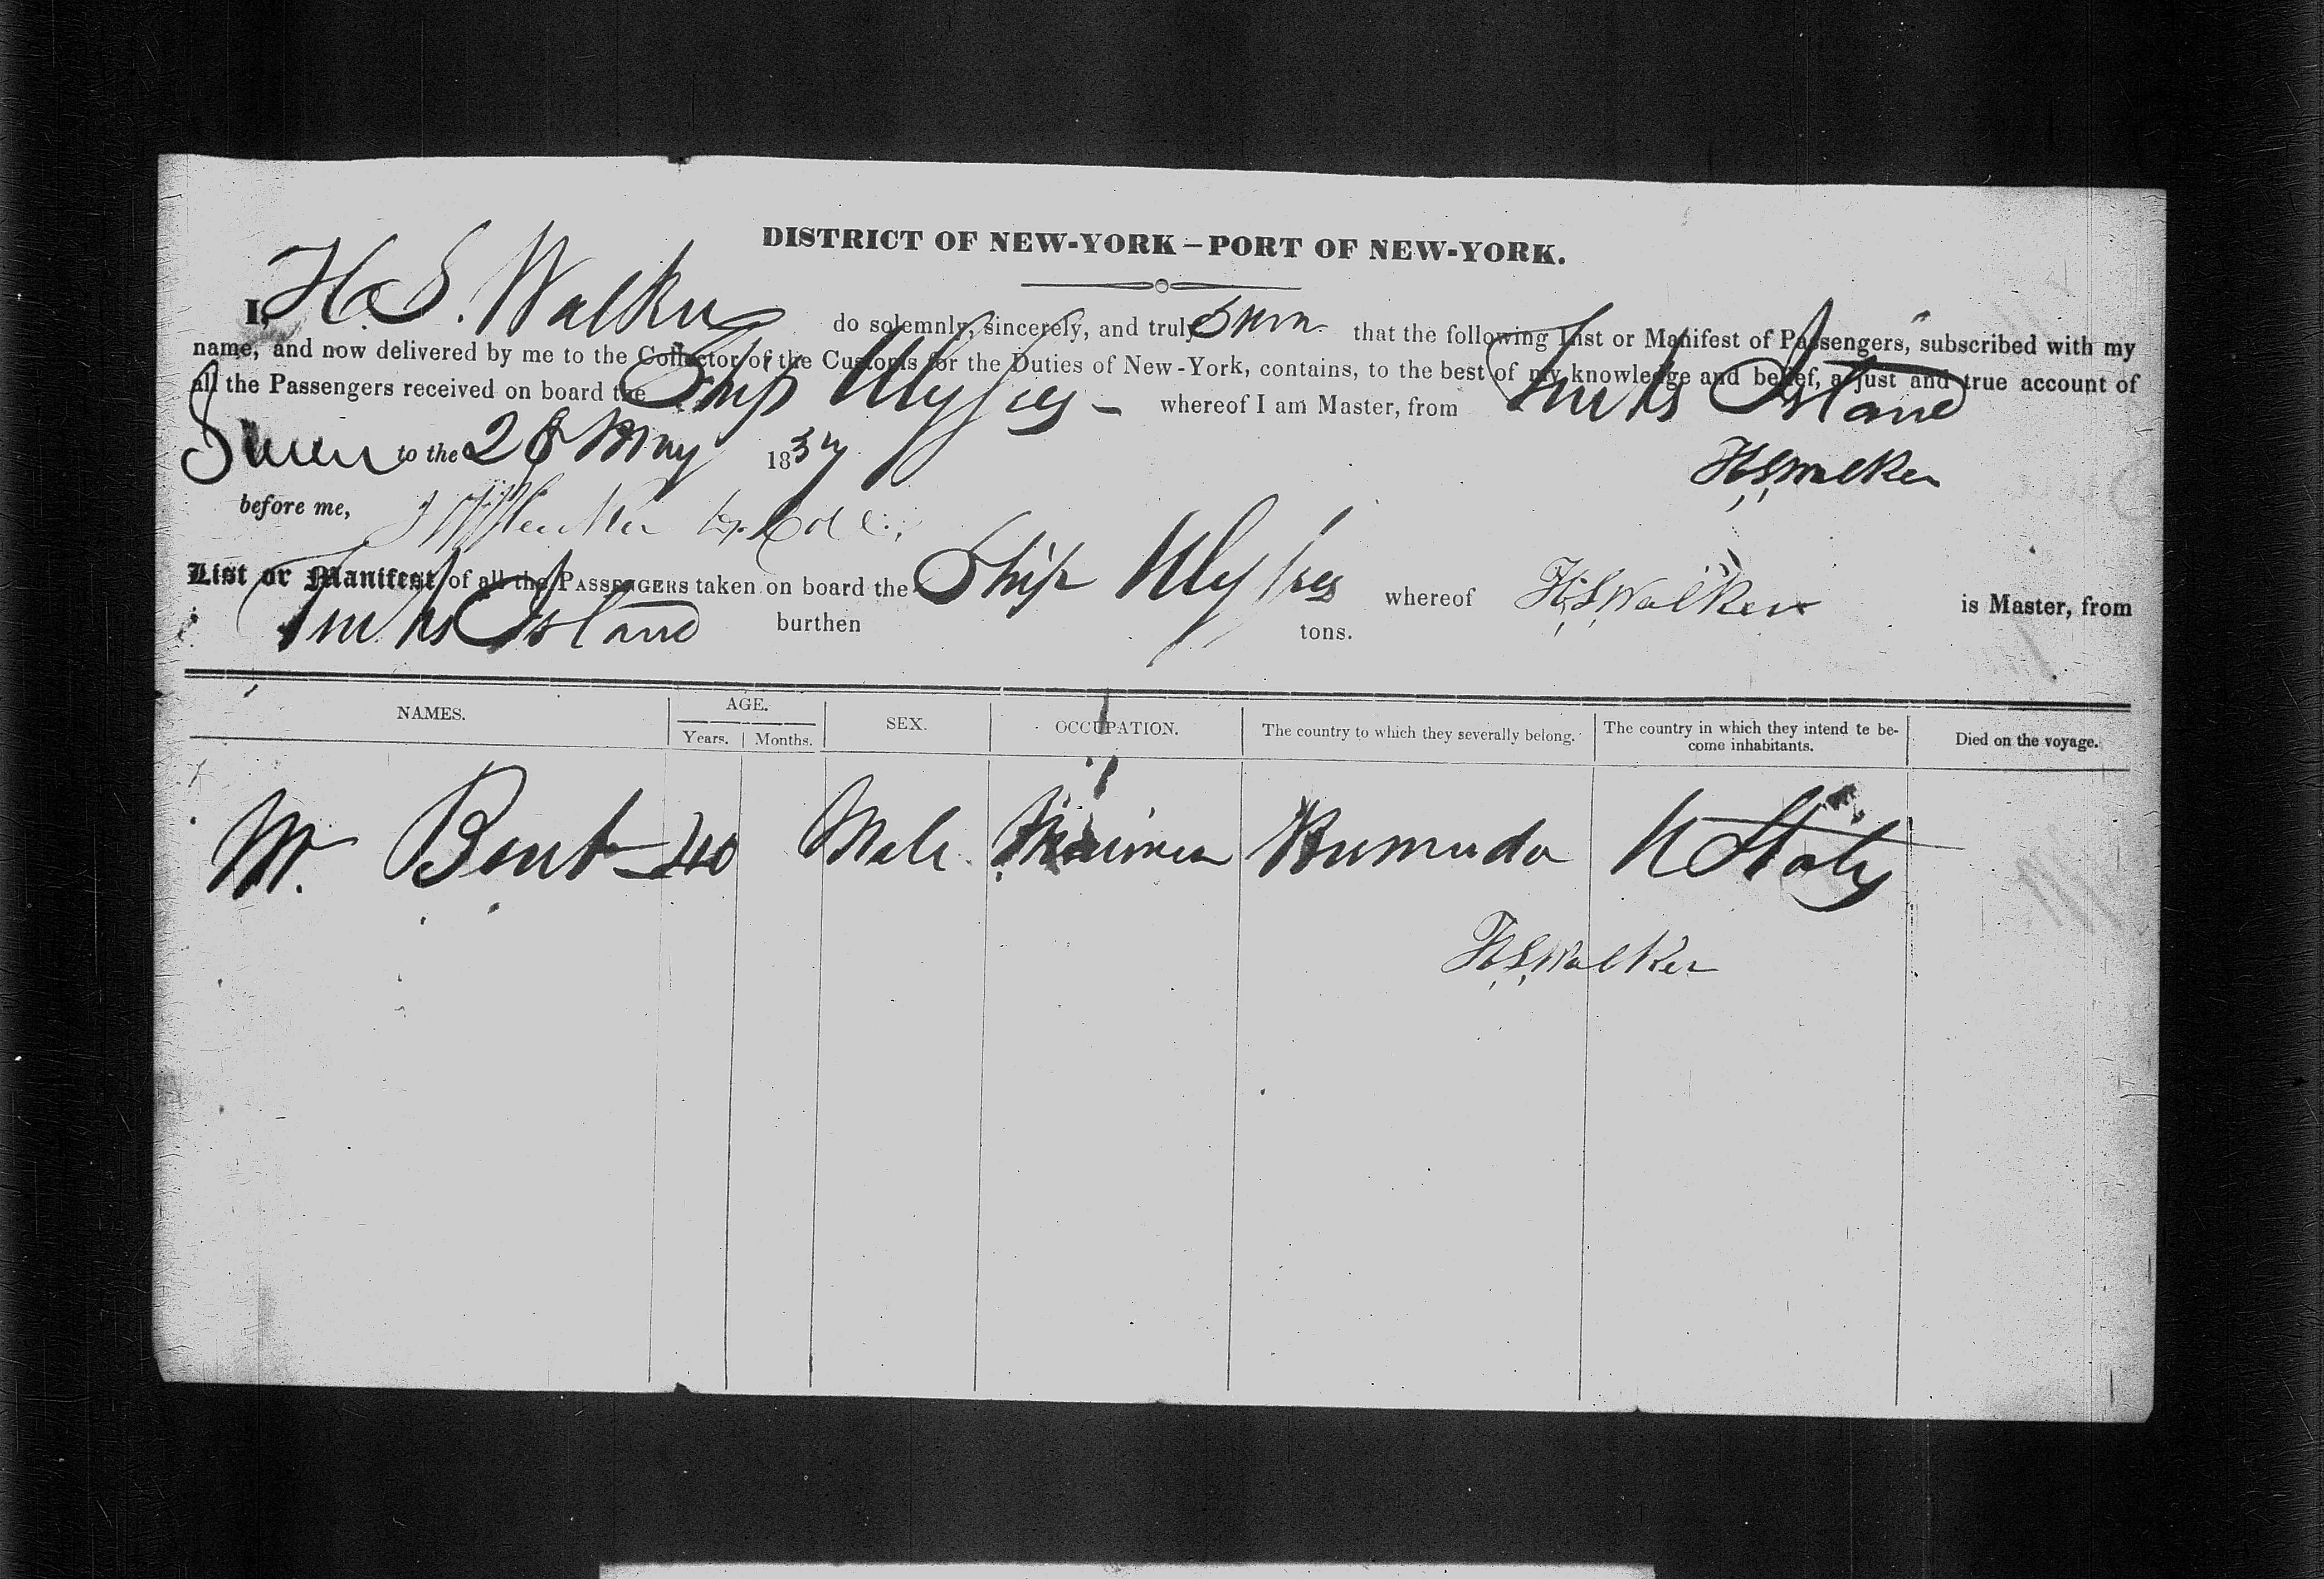 DISTRICT OF NEW-YORK – PORT OF NEW-YORK.
I, H. S. Walker do solemnly, sincerely, and truly swear that the following List or Manifest of Passengers, subscribed with my
name, and now delivered by me to the Collector of the Customs for the Duties of New-York, contains, to the best of my knowledge and belief, a just and true account of
all the Passengers received on board the Ship Ulysses — whereof I am Master, from Turks Island
Sworn to the 28 May 1837
H. S. Walker
before me,
List or Manifest of all the PASSENGERS taken on board the Ship Ulysses whereof H. S. Walker is Master, from
Turks Island burthen tons.
NAMES. AGE. SEX. OCCUPATION. The country to which they severally belong. The country in which they intend te be-
come inhabitants. Died on the voyage.
Years. Months.
Mr. Bent 40 Male Mariner Burmuda U States
H. S. Walker